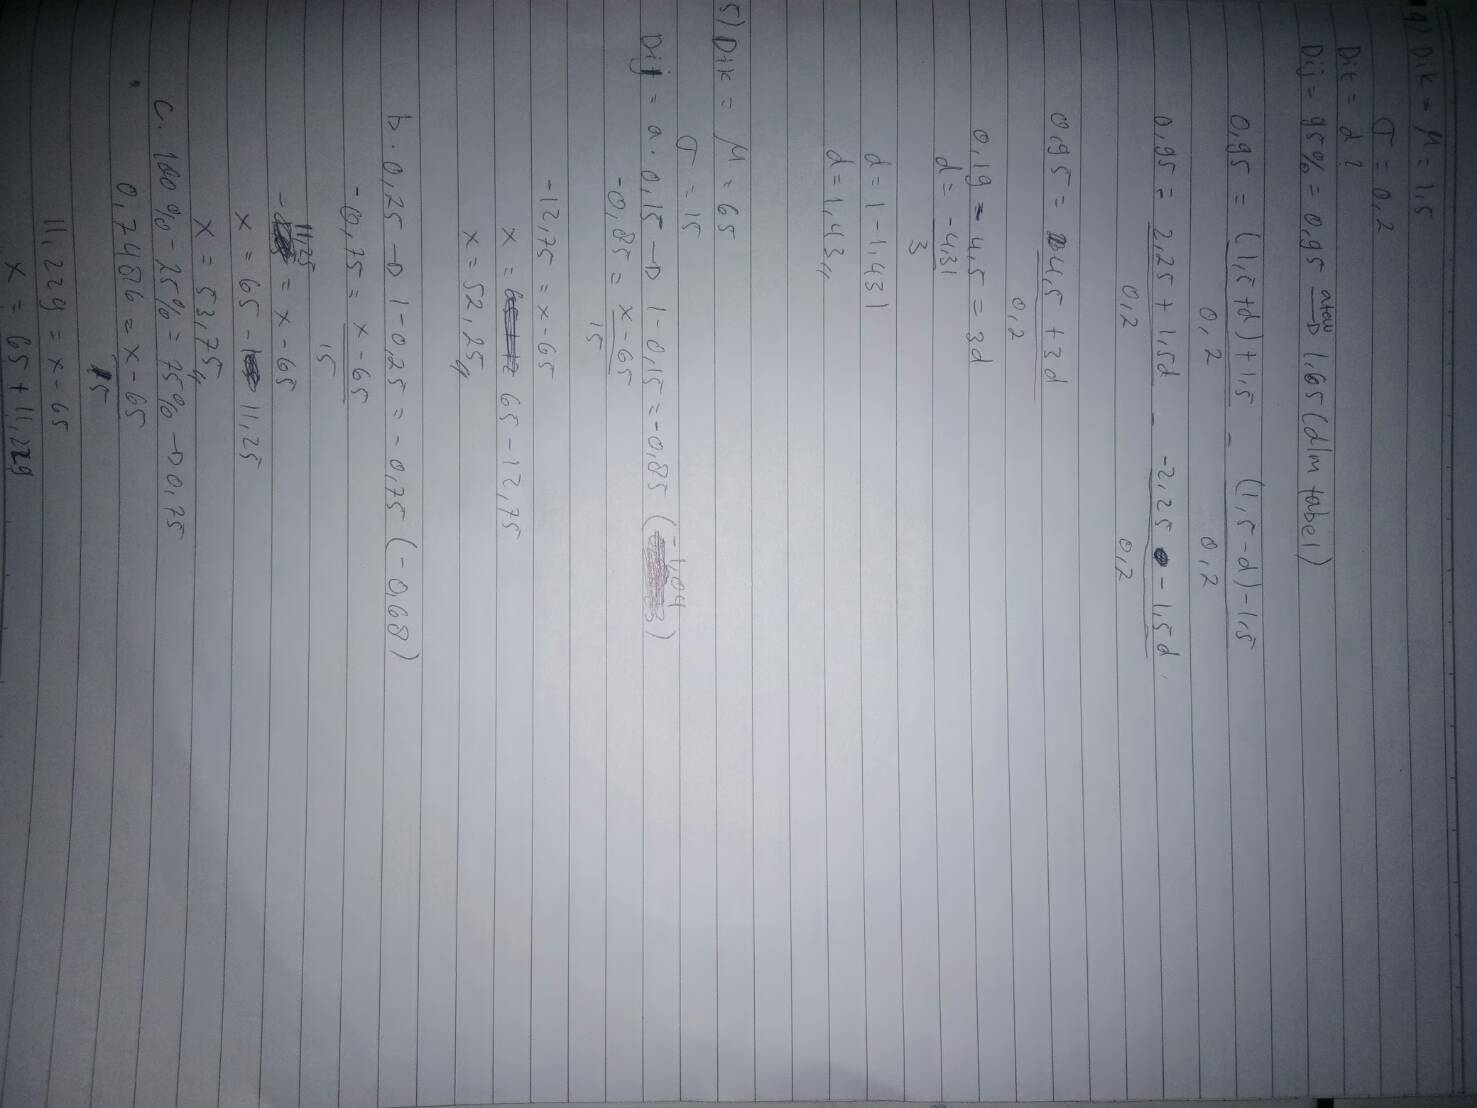 4) Dik = μ = 1,5
σ = 0,2
Dit = d?
Dij = 95% = 0,95 atau → 1,65 (dlm tabel)
0,95 = (1,5+d)+1,5 - (1,5-d)-1,5
0,2 0,2
0,95 = 2,25 + 1,5d - -2,25 - 1,5d
0,2 0,2
0,95 = 4,5 + 3d
0,2
0,19 - 4,5 = 3d
d = -4,31
3
d = 1 - 1,431
d = 1,43,,
5) Dik = μ = 65
σ = 15
Dij = a. 0,15 → 1-0,15 = -0,85 (-1,04)
-0,85 = x-65
15
-12,75 = x-65
x = 65 - 12,75
x = 52,25,,
b. 0,25 → 1-0,25 = -0,75 (-0,68)
-0,75 = x-65
15
-11,25 = x-65
x = 65 - 11,25
x = 53,75,,
c. 100% - 25% = 75% → 0,75
0,7486 = x-65
15
11,229 = x-65
x = 65 + 11,229